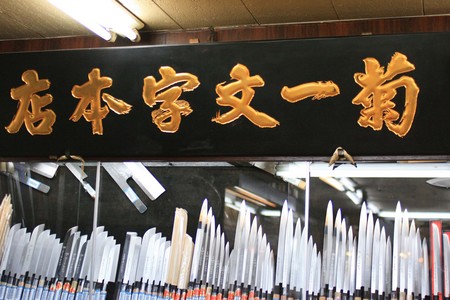 菊一文字本店